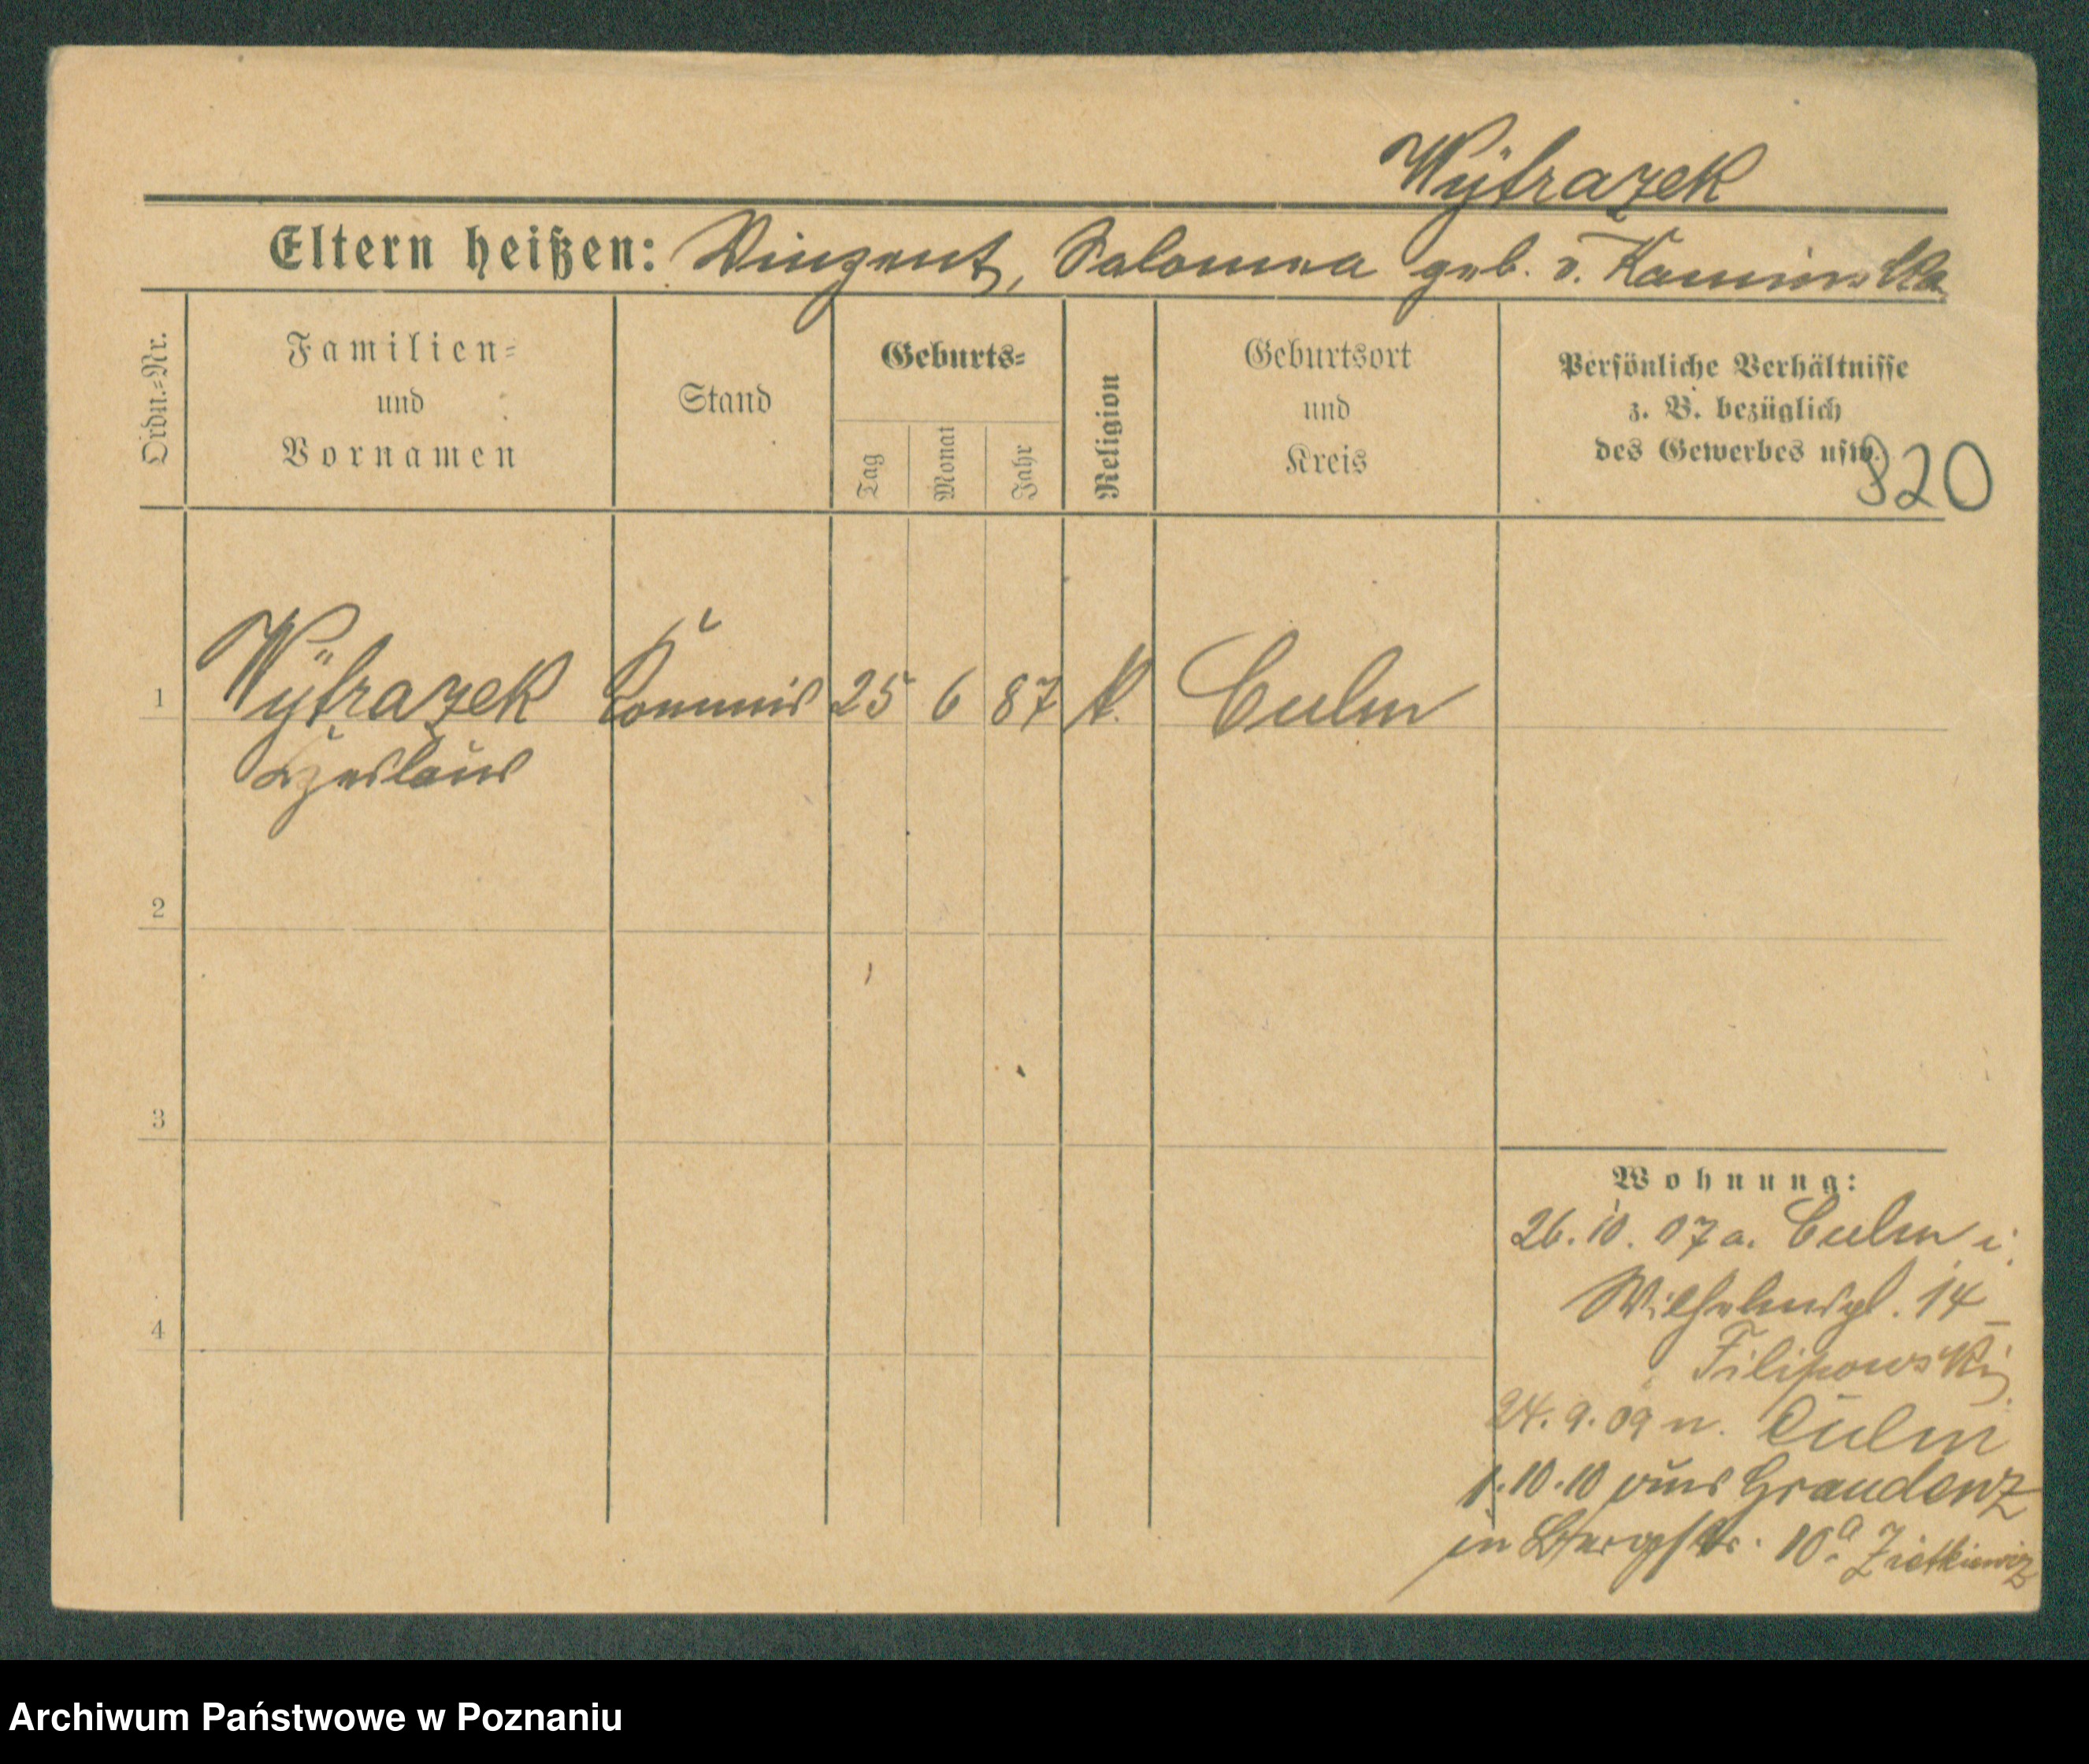 Wÿtrazek
Eltern heißen: Vinzent, Salomea geb. v. Kaminska
Ordn.=Nr.
Familien=
und
Vornamen
Stand
Geburts=
Tag
Monat
Jahr
Religion
Geburtsort
und
Kreis
Persönliche Verhältnisse
z. B. bezüglich
des Gewerbes usw.
820
1 Wÿtrazek Kommis 25 6 87 k. Culm
Czeslaus
2
3
4
Wohnung:
26.10.07 a. Culm i.
Wilhelmspl. 14
Filipowski
24.9.09 n. Culm
1.10.10 aus Graudenz
in Bergstr. 10a Zietkiewicz
Archiwum Państwowe w Poznaniu